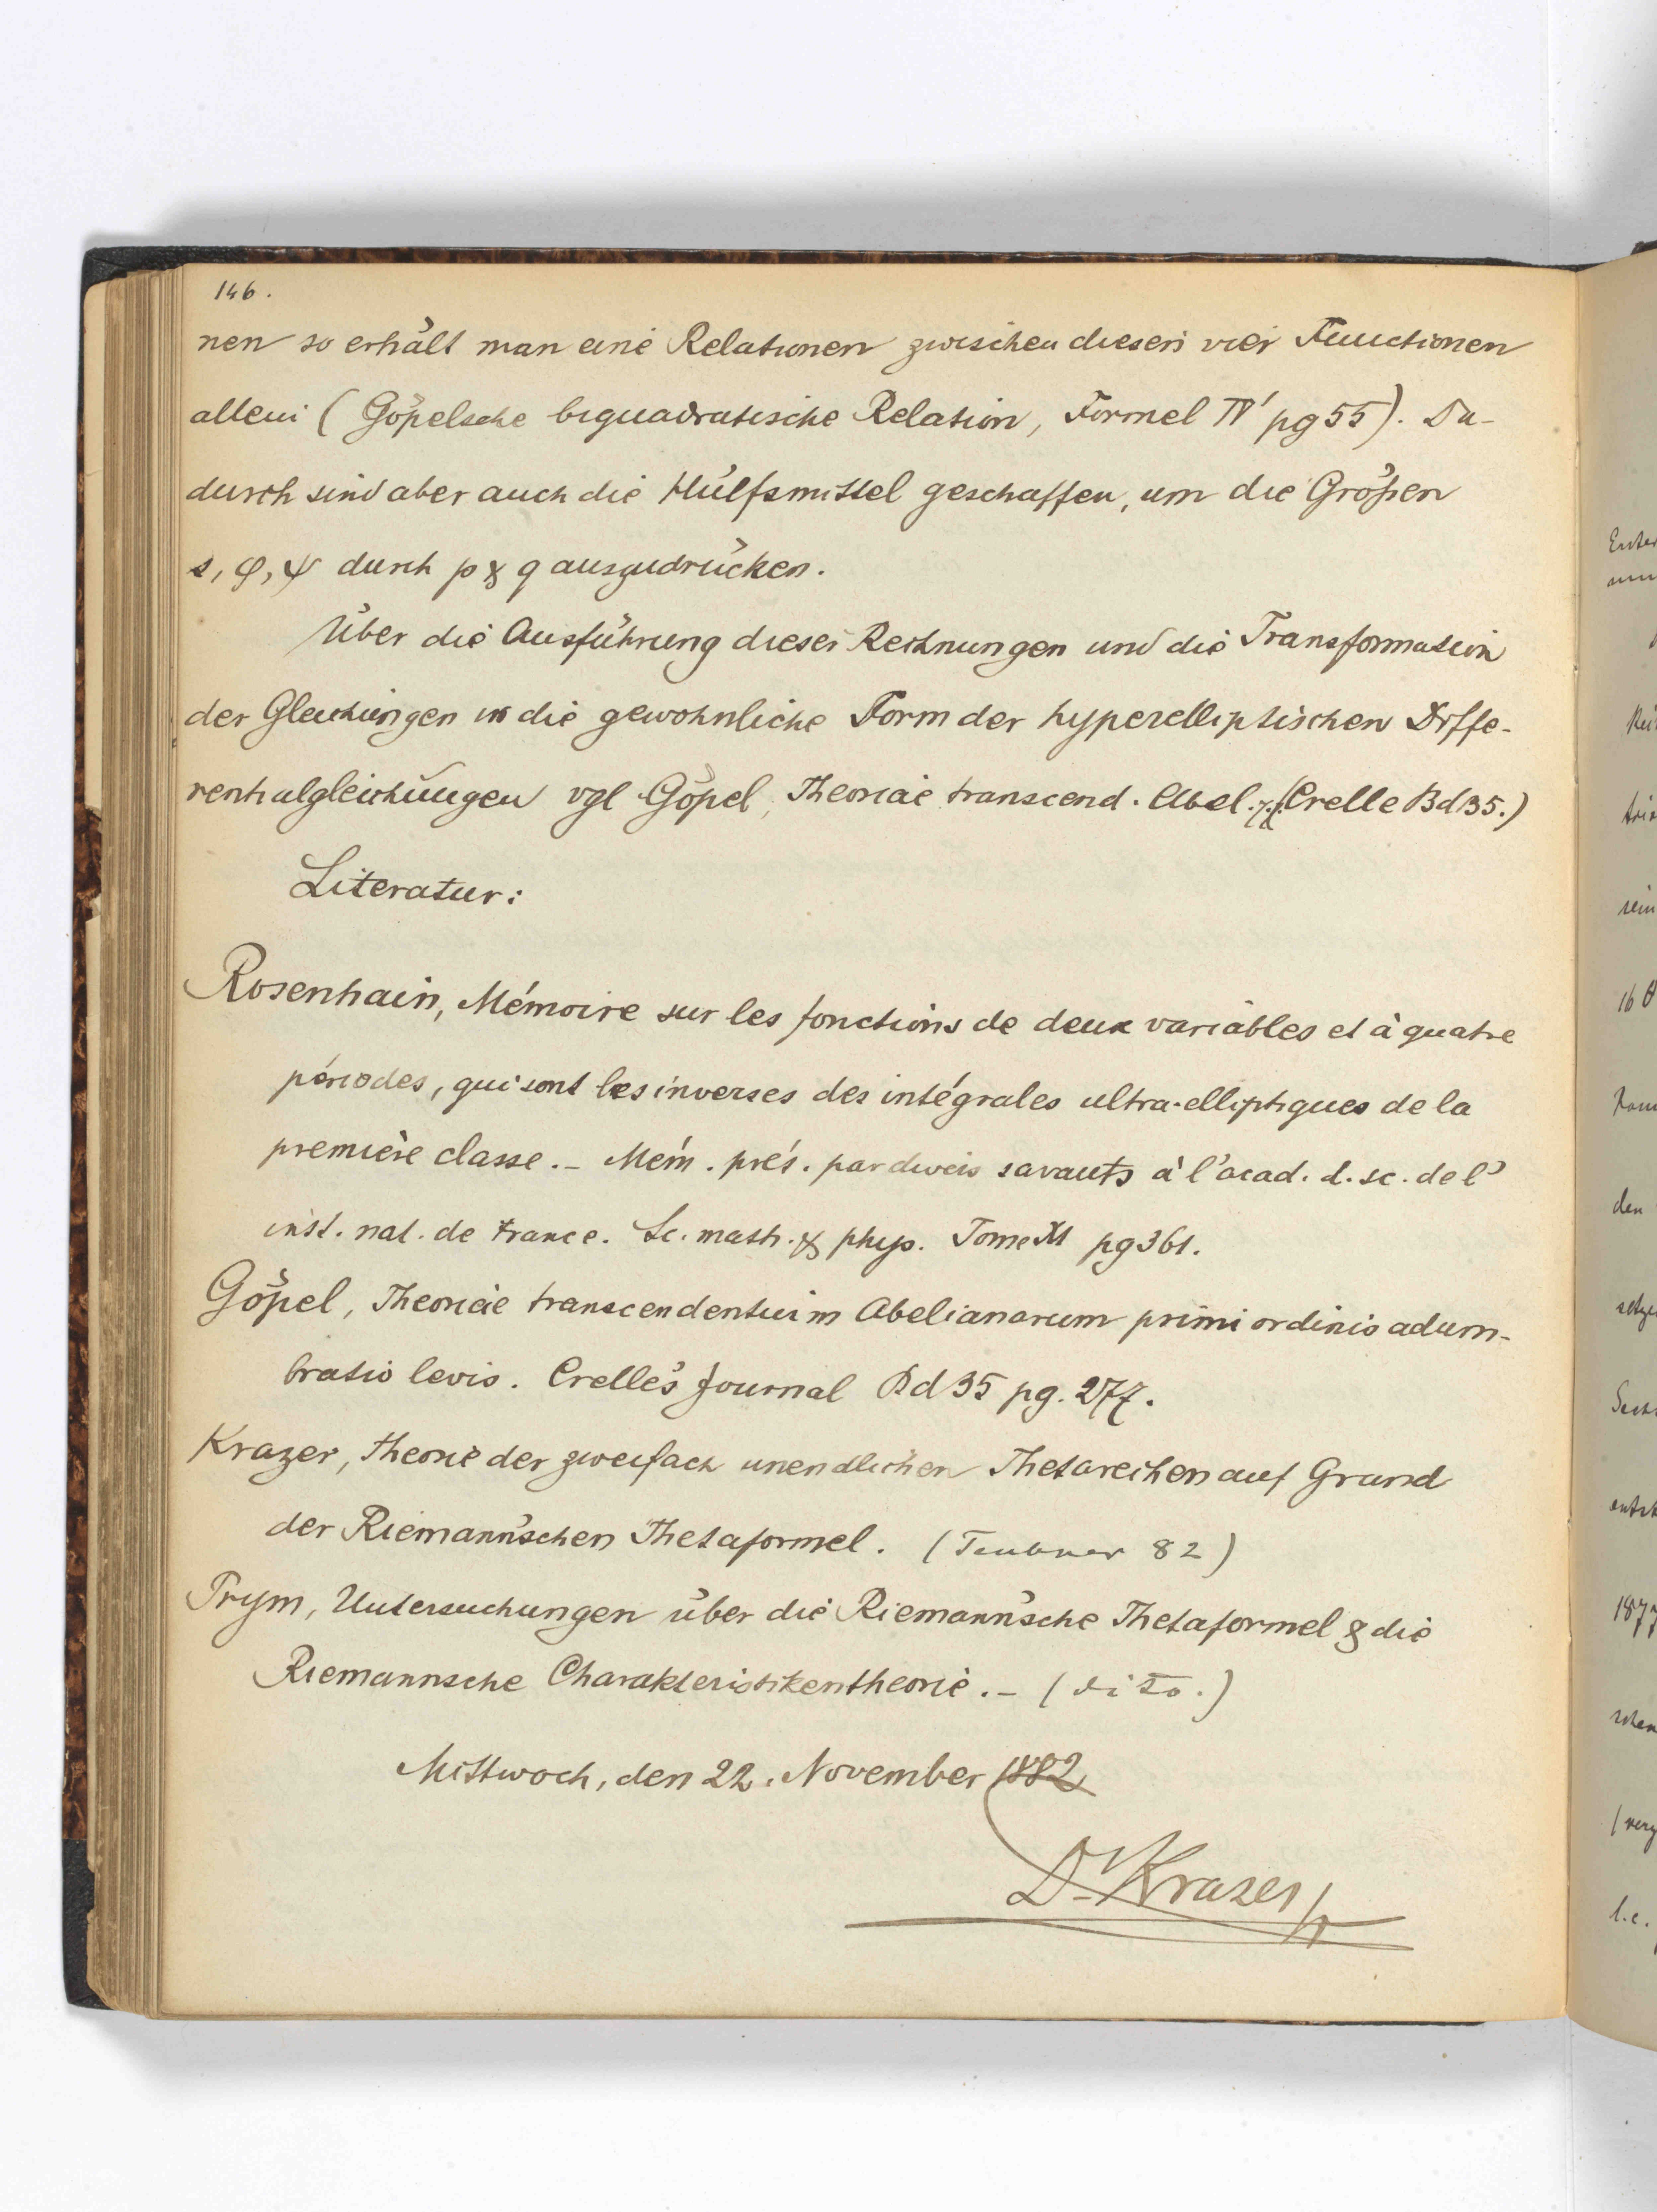 146.
nen so erhält man eine Relationen zwischen diesen vier Functionen
allein (Göpelsche biquadratische Relation, Formel IV' pg 55). Da-
durch sind aber auch die Hülfsmittel geschaffen, um die Größen
s, φ, ψ durch p & q auszudrücken.
Über die Ausführung dieser Rechnungen und die Transformation
der Gleichungen in die gewohnliche Form der hyperelliptischen Diffe-
rentialgleichungen vgl Göpel, Theoriae transcend. Abel. (Crelle Bd 35.)
Literatur:
Rosenhain, Mémoire sur les fonctions de deux variables et à quatre
périodes, qui sont les inverses des intégrales ultra-elliptiques de la
première classe. – Mém. prés. par divers savants à l'acad. d. sc. de l'
inst. nat. de France. Sc. math. & phys. Tome XI pg 361.
Göpel, Theoriae transcendentium Abelianarum primi ordinis adum-
bratio levis. Crelle's Journal Bd 35 pg. 277.
Krazer, Theorie der zweifach unendlichen Thetareihen auf Grund
der Riemann'schen Thetaformel. (Teubner 82)
Prym, Untersuchungen über die Riemann'sche Thetaformel & die
Riemannsche Charakteristikentheorie. – (dito.)
Mittwoch, den 22. November 1882
Dr Krazer
Enter
den
1877
l.c.